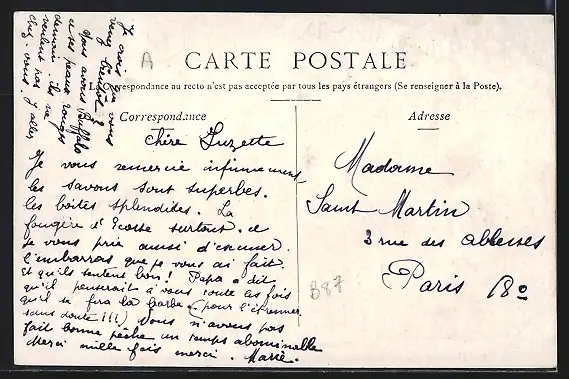 A
CARTE POSTALE
La Correspondance au recto n'est pas acceptée par tous les pays étrangers (Se renseigner à la Poste).
Correspondance
Chère Suzette
Je vous remercie infiniment,
les savons sont superbes.
les boîtes splendides. La
fougère d'Ecosse surtout. et
je vous prie aussi d'excuser
l'embarras que je vous ai fait.
Et qu'ils sentent bons! Papa a dit
qu'il penserait à vous toute les fois
qu'il se fera la barbe (pour l'étrenner
sans doute!!!) Nous n'avons pas
fait bonne pêche un temps abominable
Merci mille fois merci. Marie.
Je crois que vous
venez bientôt?
Nous avons Buffalo
et ses peaux rouges
demain. Ils ne
veulent pas
chez vous. J allez
Adresse
Madame
Saint Martin
3 rue des abbesses
Paris 18e
B87